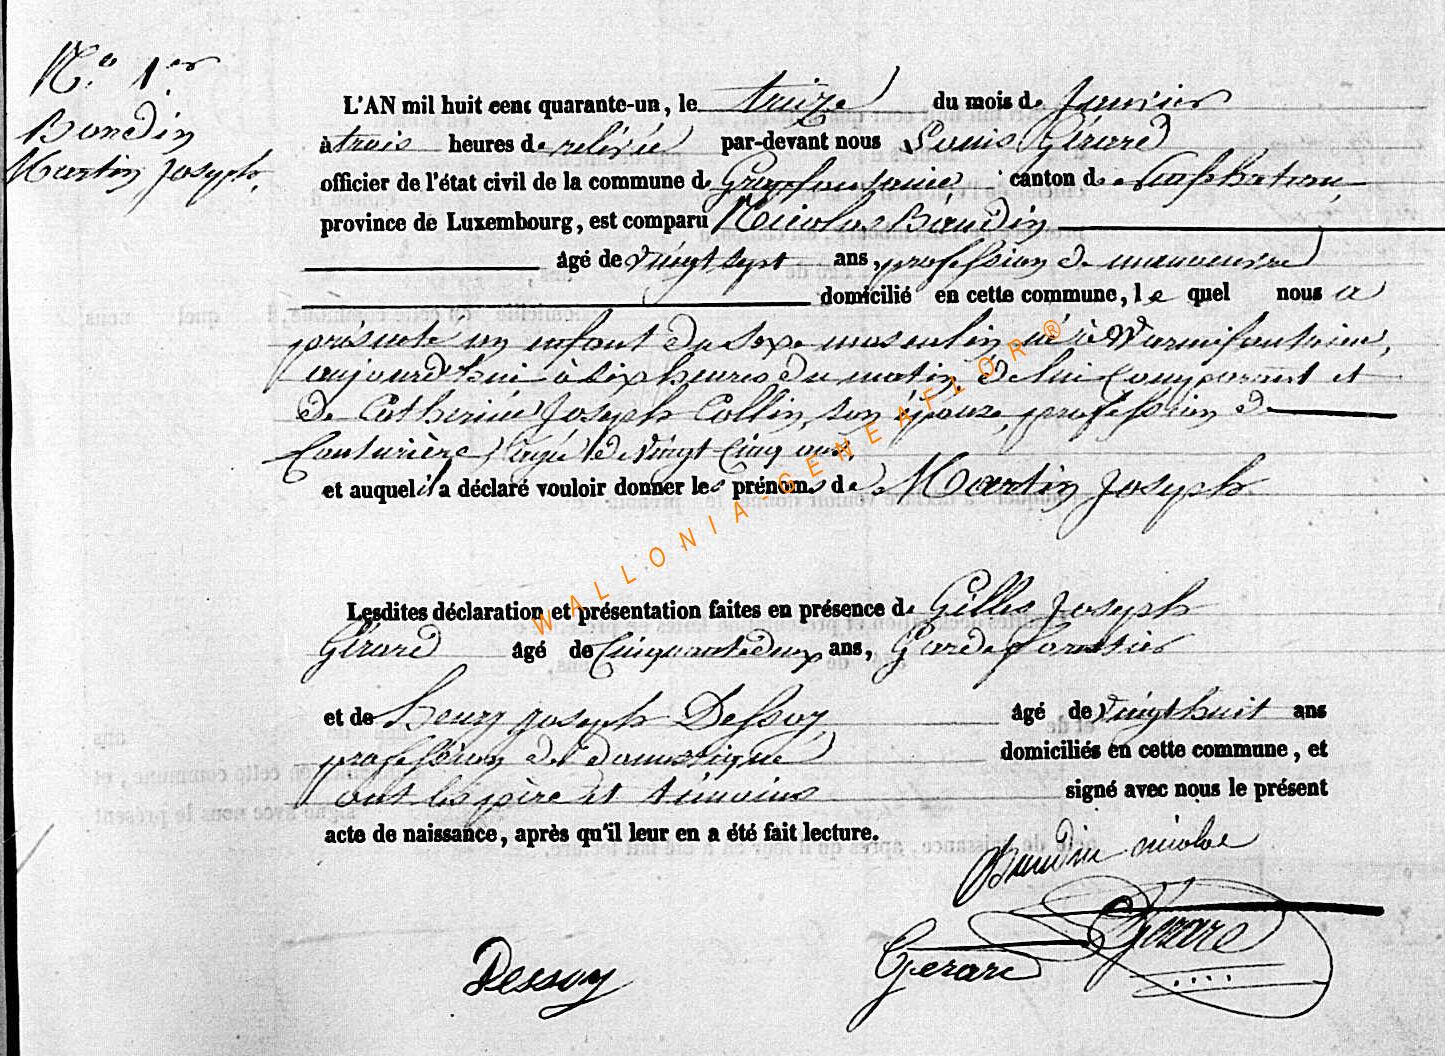 N.o 1.er
Baudin
Martin Joseph.
L'AN mil huit cent quarante-un, le treize du mois de Janvier
à trois heures de relevée par-devant nous Louis Gérard
officier de l'état civil de la commune de Grapfontaine, canton de
province de Luxembourg, est comparu Nicolas Baudin
âgé de vingt sept ans, profession de manoeuvre
domicilié en cette commune, le quel nous a
présenté un enfant du sexe masculin né à Warmifontaine,
aujourd'hui à six heures du matin, de lui comparant et
de Catherine Joseph Collin, son épouse, profession de
Couturière, âgée de vingt-cinq ans,
et auquel il a déclaré vouloir donner les prénoms de Martin Joseph.
Lesdites déclaration et présentation faites en présence de Gilles Joseph
Gérard âgé de Cinquante deux ans, Garde forestier
et de henry joseph Dessoy, âgé de vingt huit ans
profession de domestique domiciliés en cette commune, et
ont les père et témoins signé avec nous le présent
acte de naissance, après qu'il leur en a été fait lecture.
Baudin nicolas
Gérard
Gerard
Dessoy
WALLONIA-GENEAFLOR®